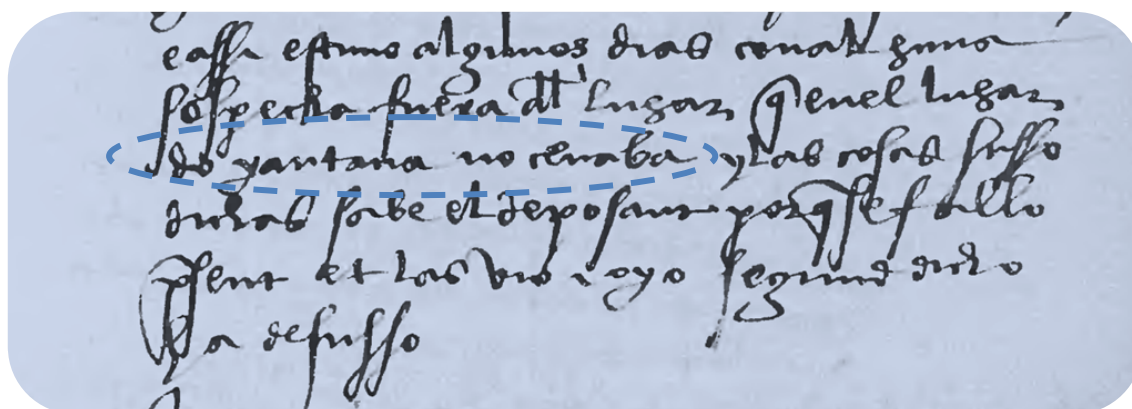 e assi estuuo algunos dias con alguna
sospecha fuera dll luguar q en el luguar
do yantaua no cenaba y las cosas susso
dichas sabe el deposant porq se fallo
psent et las vio i oyo segund dicho
ha desusso